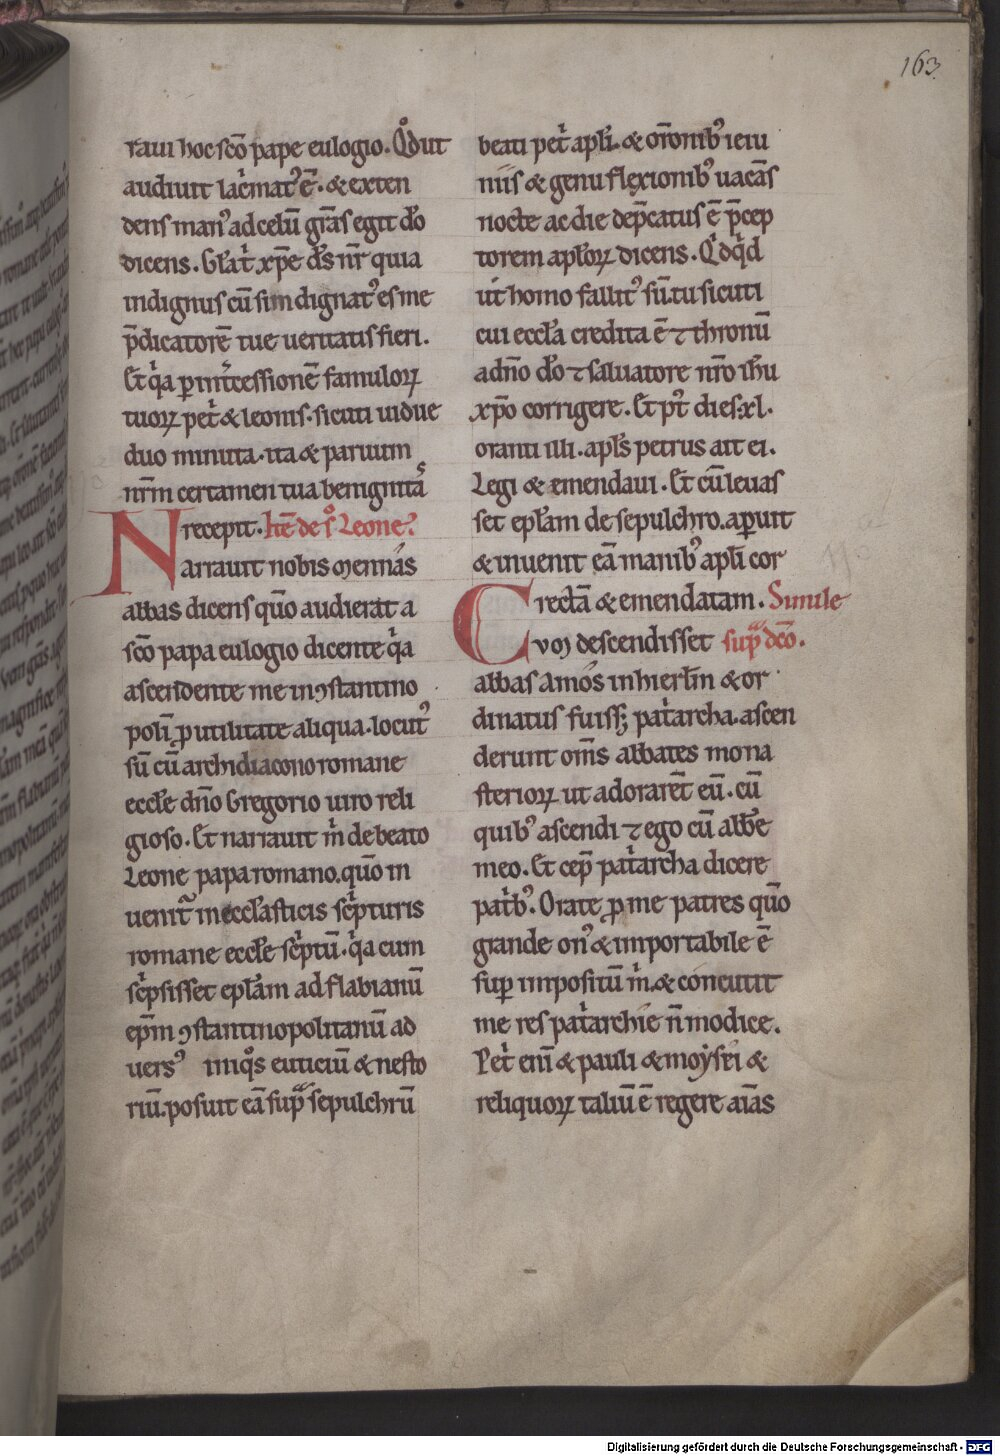 163
raui hoc scō pape eulogio. Qd̊ ut
audiuit lac̄mat᷒ ē. & exten
dens man᷒ ad celū gr̄as egit dō
dicens. Gl̄a t̓ xp̄e d̄s nr̄ quia
indignus cū sim dignat᷒ es me
p̄dicatorē tue ueritatis fieri.
Et q̓a ꝑ int̓cessionē famuloꝝ
tuoꝝ pet̓ & leonis. sicuti uidue
duo minuta. ita & paruum
nr̄m certamen tua benignitas
recepit. Itē de s̊ Leone.
Narrauit nobis mennas
abbas dicens quō audierat a
scō papa eulogio dicente q̓a
ascendente me in ꝯstantino
polī ꝓ utilitate aliqua. locut᷒
sū cū archidiacono romane
eccl̄e dn̄o Gregorio uiro reli
gioso. Et narrauit m̓ de beato
Leone papa romano. quō in
uenit̄ in eccl̄asticis sc̓pturis
romane eccl̄e sc̓ptū. q̓a cum
sc̓psisset epl̄am ad flabianū
ep̄m ꝯstantinopolitanū ad
uers᷒ iniq̊s euticiū & nesto
riū. posuit eā sup̄ sepulchrū
beati pet̓ apl̄i. & orōnib᷒ ieiu
niis & genu flexionib᷒ uacās
nocte ac die dep̄catus ē p̄cep
torem apl̄oꝝ dicens. Qd̓ q̓d
ut homo fallit᷒ sū. tu sicuti
cui eccl̄a credita ē ⁊ thronū
a dn̄o dō ⁊ saluatore nr̄o ih̄u
xp̄o corrigere. Et pt̄ dies .xl.
oranti illi. apl̄s petrus ait ei.
Legi & emendaui. Et cū leuas
set epl̄am de sepulchro. aꝑuit
& inuenit eā manib᷒ apl̄i cor
rectā & emendatam. Simile
Cvoꝫ descendisset sup̄ dc̄o.
abbas Amos in hierl̄m & or
dinatus fuissꝫ pat̓archa. ascen
derunt om̄s abbates mona
sterioꝝ ut adorarēt eū. cū
quib᷒ ascendi ⁊ ego cū abb̄e
meo. Et cep̄ pat̓archa dicere
pat̓b᷒. Orate ꝓ me patres quō
grande on᷒ & importabile ē
suꝑ impositū m̓. & concutit
me res pat̓archie n̄ modice.
Pet̓ enī & pauli & moẏsi &
reliquoꝝ taliū ē regere aīas
Digitalisierung gefördert durch die Deutsche Forschungsgemeinschaft - DFG